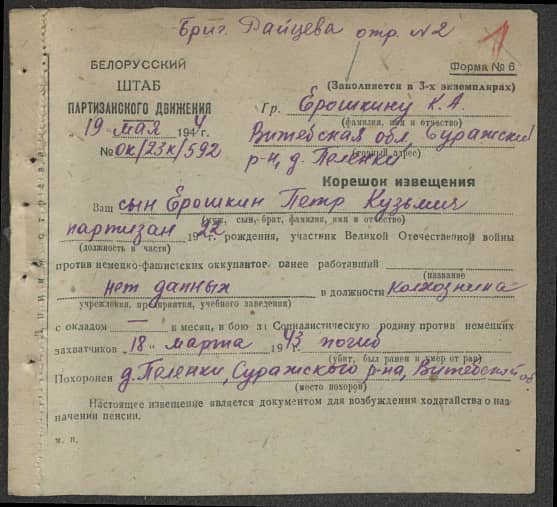 Бриг. Райцева отр. №2
1
БЕЛОРУССКИЙ
ШТАБ
ПАРТИЗАНСКОГО ДВИЖЕНИЯ
„19" мая 1944 г.
№ ок/23к/592
Форма № 6
(Заполняется в 3-х экземплярах)
Гр. Ерошкину К.А.
(фамилия, имя и отчество)
Витебская обл, Суражский
р-н, д. Пеленки
(точный адрес)
Корешок извещения
Ваш сын Ерошкин Петр Кузьмич
(муж, сын, брат, фамилия, имя и отчество)
партизан 1922 г. рождения, участник Великой Отечественной войны
(должность и часть)
против немецко-фашистских оккупантов, ранее работавший
(название
нет данных в должности колхозника
учреждения, предприятия, учебного заведения)
с окладом — в месяц, в бою за Социалистическую родину против немецких
захватчиков 18 марта 1943 погиб
(убит, был ранен и умер от ран)
Похоронен д. Пеленки, Суражского р-на, Витебской об.
(место похорон)
Настоящее извещение является документом для возбуждения ходатайства о на-
значении пенсии.
м. п.